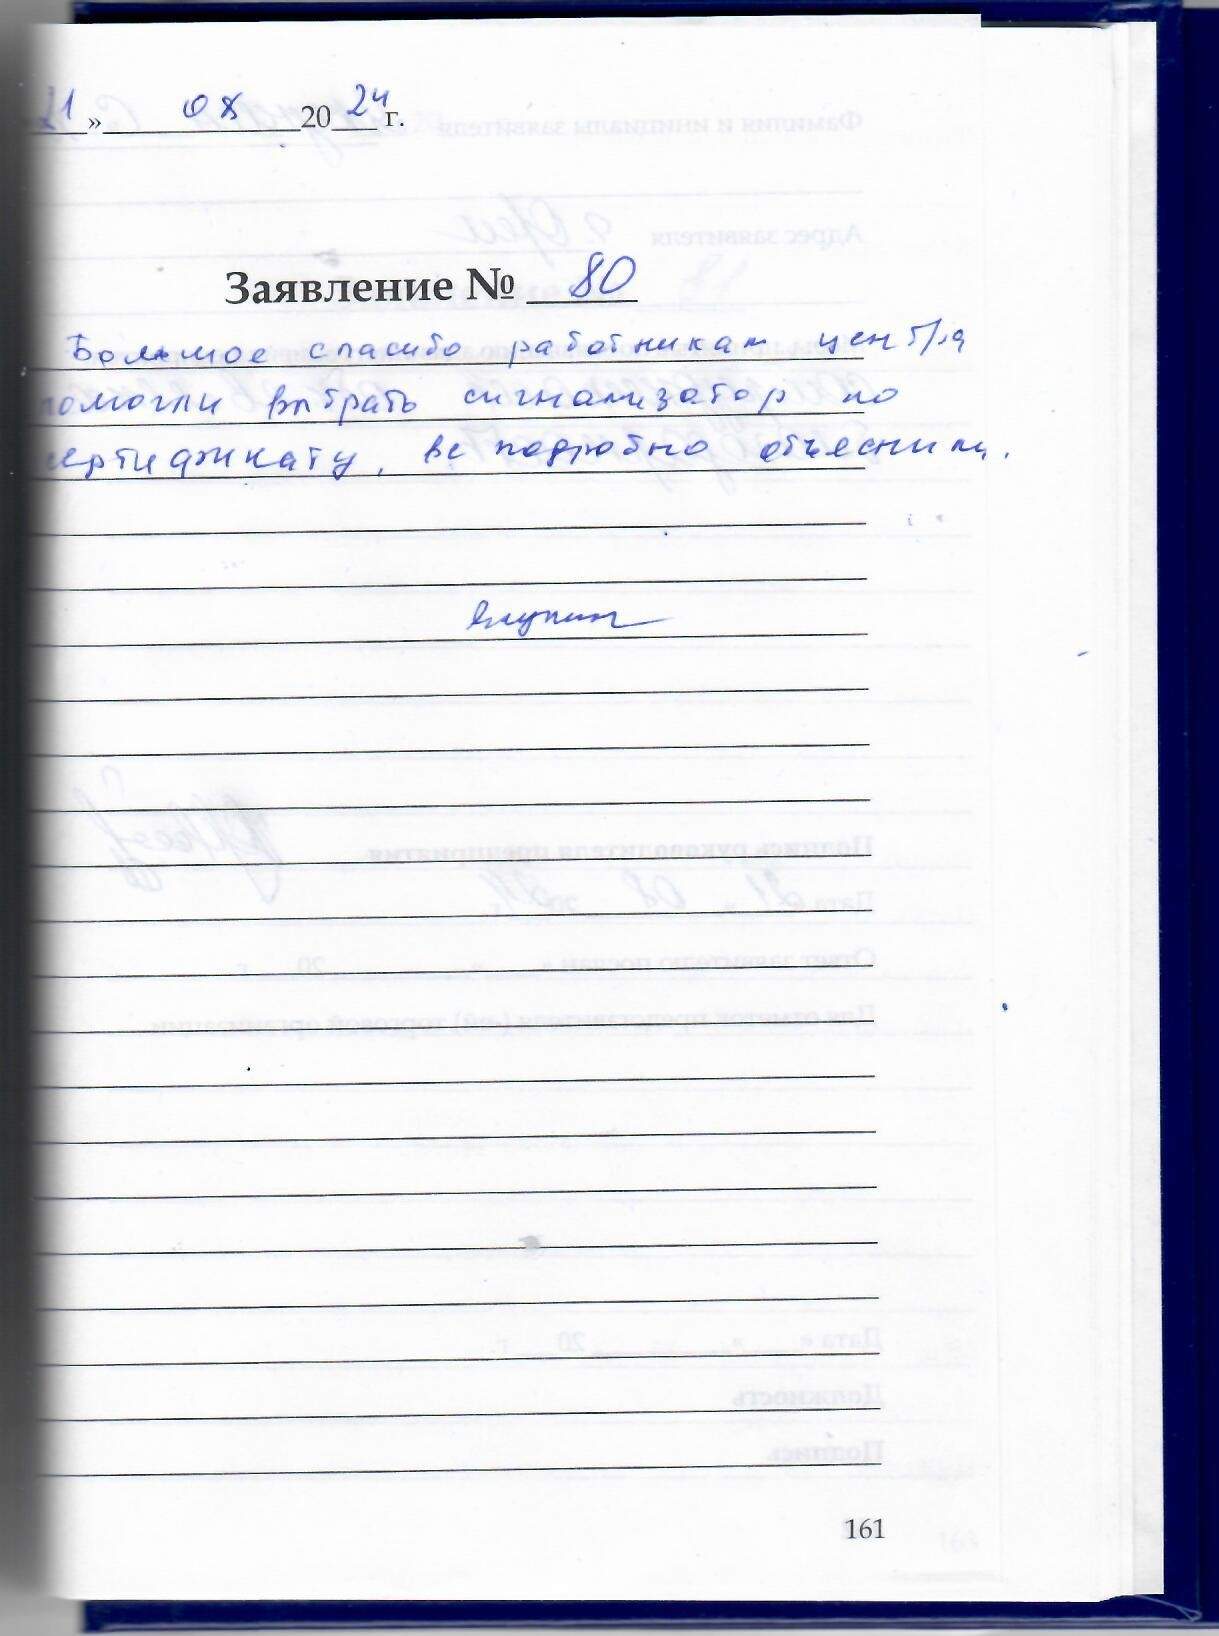 21 » 08 2024 г.
Заявление № 80
Большое спасибо работникам центра
помогли выбрать сигнализатор по
сертификату, все подробно объяснили.
161